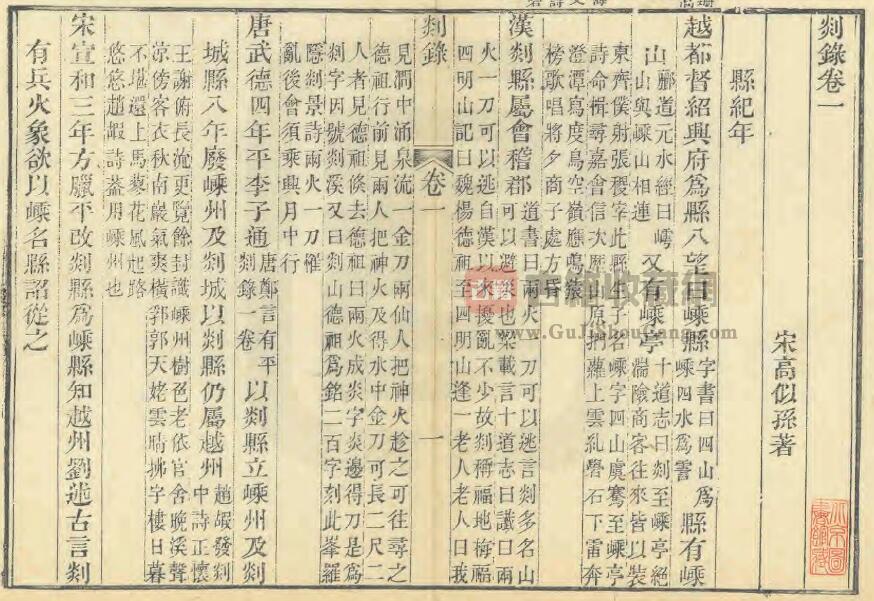 剡錄卷一
宋高似孫著
縣紀年
越都督紹興府爲縣八望曰嵊縣字書曰四山爲嵊四水爲䨏縣有嵊
山酈道元水經曰嶀山與嵊山相連又有嵊亭十道志曰剡至嵊亭絕湍險商客往來皆以裝
東齊僕射張稷宰此縣生子名嵊字四山虞騫至嵊亭
詩命楫尋嘉會信次歷山原捫蘿上雲糺礐石下雷奔
澄潭寫度鳥空嶺應鳴猿
榜歌唱將夕商子處方昏
漢剡縣屬會稽郡道書曰兩火一刀可以逃言剡多名山可以避災也梁載言十道志曰讖曰兩
火一刀可以逃自漢以來擾亂不少故剡稱福地梅福
四明山記曰魏楊德祖至四明山逢一老人老人曰我
剡錄 卷一 一
見澗中涌泉流一金刀兩仙人把神火趁之可往尋之
德祖行前見兩人把神火及得水中金刀可長二尺二
人者見德祖倐去德祖曰兩火成炎字炎邊得刀是爲
剡字因號剡溪又曰剡山德祖爲銘二百字刻此峯羅
隱剡景詩兩火一刀罹
亂後會須乘興月中行
唐武德四年平李子通唐鄭言有平剡錄一卷以剡縣立嵊州及剡
城縣八年廢嵊州及剡城以剡縣仍屬越州趙嘏發剡中詩正懷
王謝俯長流更覽餘封識嵊州樹色老依官舍晚溪聲
涼傍客衣秋南巖氣爽橫郛郭天姥雲晴拂字樓日暮
不堪還上馬蓼花風起路
悠悠趙嘏詩蓋用嵊州也
宋宣和三年方臘平改剡縣爲嵊縣知越州劉述古言剡
有兵火象欲以嵊名縣詔從之
古籍
古籍收藏网
www.GuJiShouCang.com